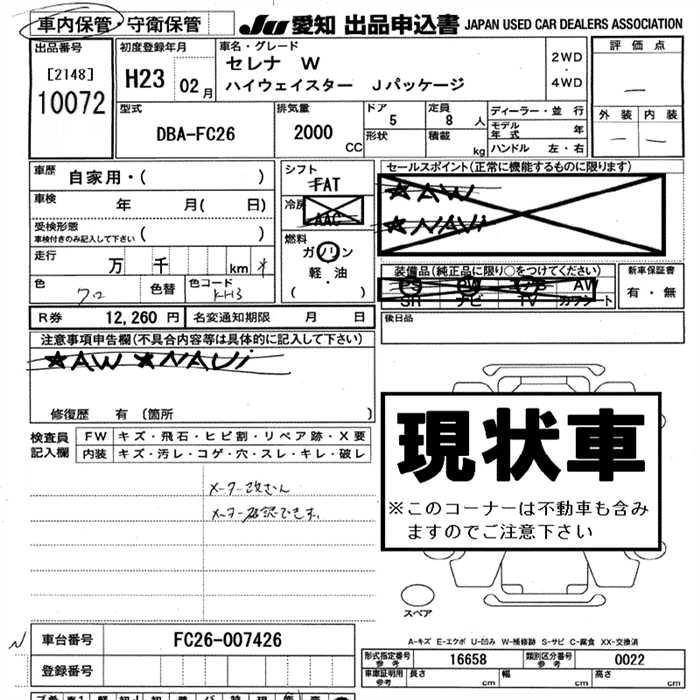 車内保管・守衛保管
JU 愛知 出品申込書 JAPAN USED CAR DEALERS ASSOCIATION
出品番号
[2148]
10072
初度登録年月
H23 02 月
車名・グレード
セレナ W
ハイウェイスター Jパッケージ
2WD
・
4WD
評価点
—
外装 内装
— —
型式
DBA-FC26
排気量
2000
CC
ドア
5
形状
定員
8 人
積載
kg
ディーラー・並行
モデル年式 年
ハンドル 左・右
車歴
自家用・( )
車検 年 月( 日)
受検形態
車検付きのみ記入して下さい ( )
走行 万 千 km
色 色替 色コード
KH3
シフト
FAT
冷房
AAC
燃料
ガソリン
軽・油
( )
セールスポイント(正常に機能するものに限ります)
★AW
★NAVi
装備品(純正品に限り○をつけてください)
PS PW AB AW
SR ナビ TV カワシート
新車保証書
有・無
R券 12,260 円 名変通知期限 月 日
後日品
注意事項申告欄(不具合内容等は具体的に記入して下さい)
★AW ★NAVi
修復歴 有 〔箇所 〕
検査員記入欄
FW キズ・飛石・ヒビ割・リペア跡・X要
内装 キズ・汚レ・コゲ・穴・スレ・キレ・破レ
メーター改ざん
メーター確認できず
現状車
※このコーナーは不動車も含み
ますのでご注意下さい
スペア
A-キズ E-エクボ U-凹み W-補修跡 S-サビ C-腐食 XX-交換済
N
車台番号 FC26-007426
登録番号
形式指定番号 参考 16658 類別区分番号 参考 0022
車庫証明用 参考 長さ cm 幅 cm 高さ cm